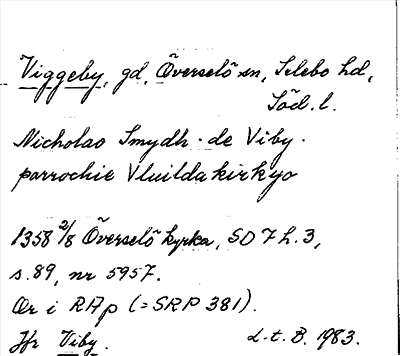 Viggeby, gd, Överselö sn, Selebo hd,
Söd. l.
Nicholao Smydh. de Viby.
parrochie Vluilda kirkyo
1358 2/8 Överselö kyrka, SD 7 h. 3,
s. 89, nr 5957.
Or i RAp (= SRP 381).
Jfr Viby. L.t.B. 1983.